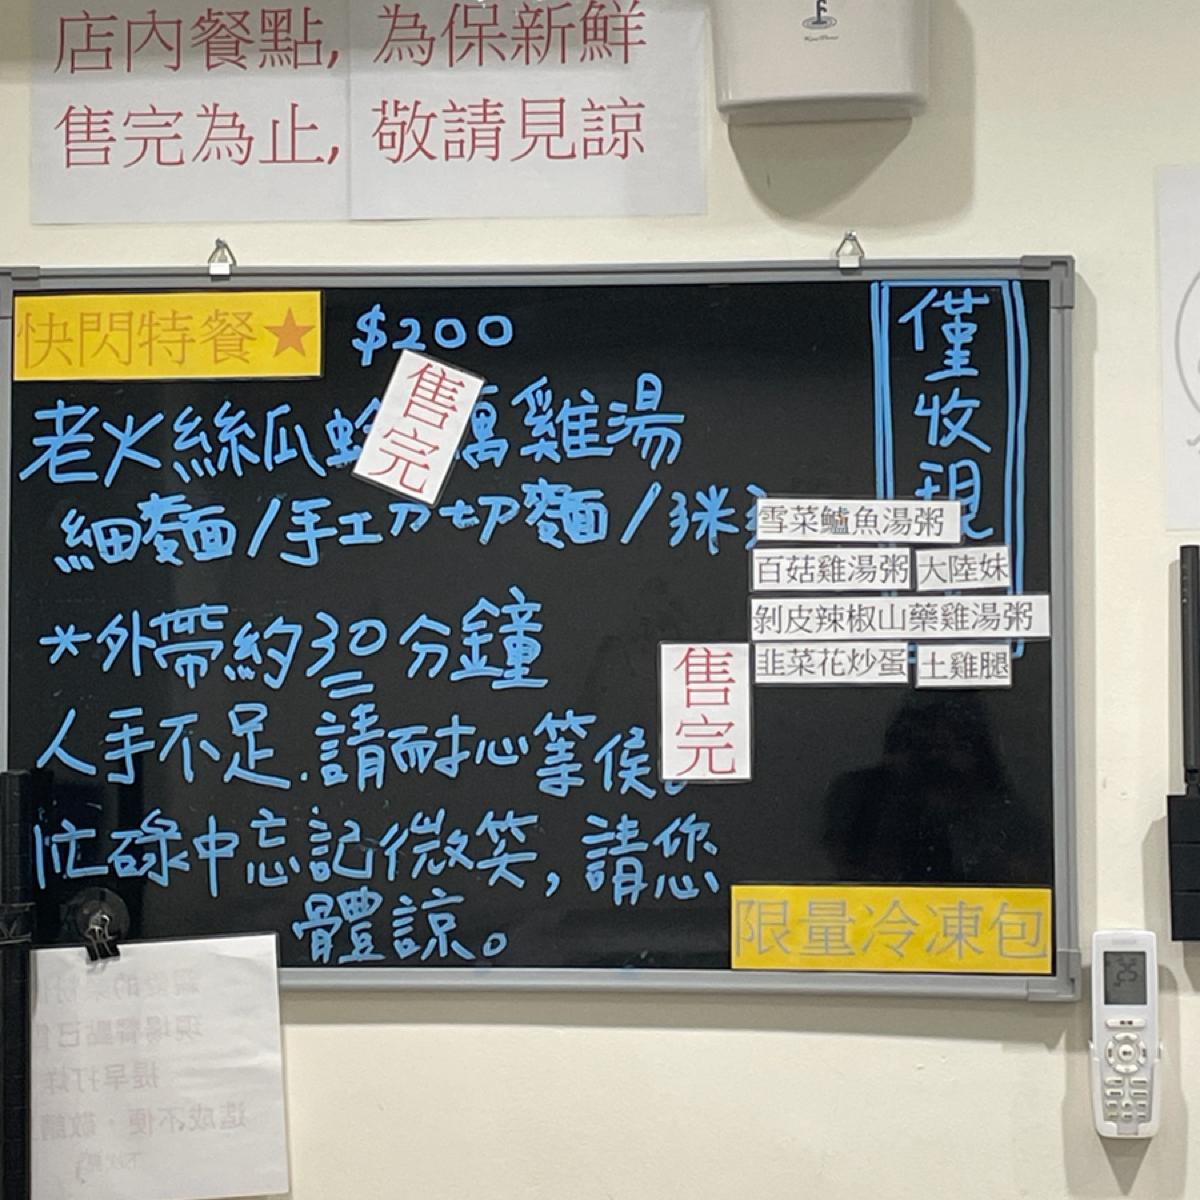 店內餐點, 為保新鮮
售完為止, 敬請見諒
快閃特餐★ $200
售完
老火絲瓜 雞湯
細麵/手工刀切麵/
*外帶約30分鐘
人手不足.請耐心等候。
忙碌中忘記微笑,請您
體諒。
僅收現
雪菜鱸魚湯粥
百菇雞湯粥
大陸妹
剝皮辣椒山藥雞湯粥
韭菜花炒蛋
土雞腿
售完
限量冷凍包
25